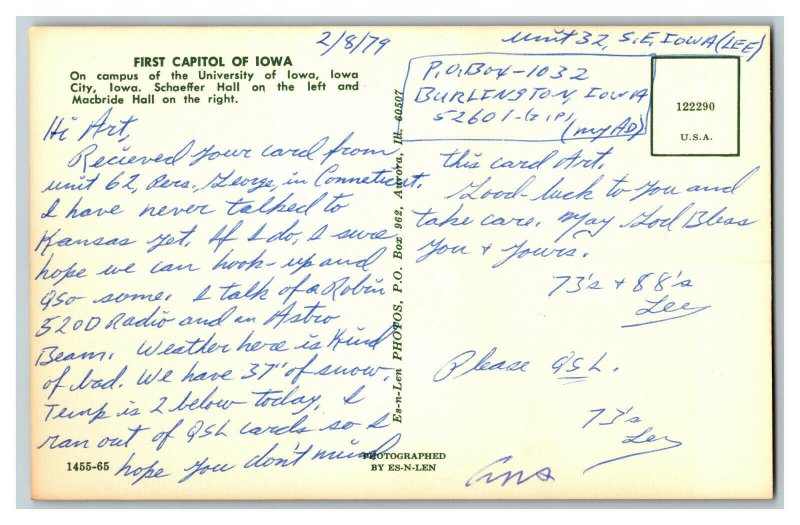 2/8/79
unit 32, S.E. Iowa (LEE)
FIRST CAPITOL OF IOWA
On campus of the University of Iowa, Iowa
City, Iowa. Schaeffer Hall on the left and
Macbride Hall on the right.
P.O. Box-1032
BURLINGTON, IOWA
52601-(ZIP)
(my AD)
122290
U.S.A.
Hi Art,
Recieved your card from
unit 62, Pers. George, in Conneticut.
I have never talked to
Kansas yet. If I do, I sure
hope we can hook-up and
QSO some. I talk of a Robin
520D Radio and an Astro
Beam. Weather here is Kind
of bad. We have 37" of snow.
Temp is 2 below today. I
ran out of QSL cards so I
hope you don't mind
this card Art.
Good-luck to You and
take care. May God Bless
You + Yours.
73's + 88's
Lee
Please QSL.
73's
Lee
Es-n-Len PHOTOS, P.O. Box 962, Aurora, Ill. 60507
1455-65
PHOTOGRAPHED
BY ES-N-LEN